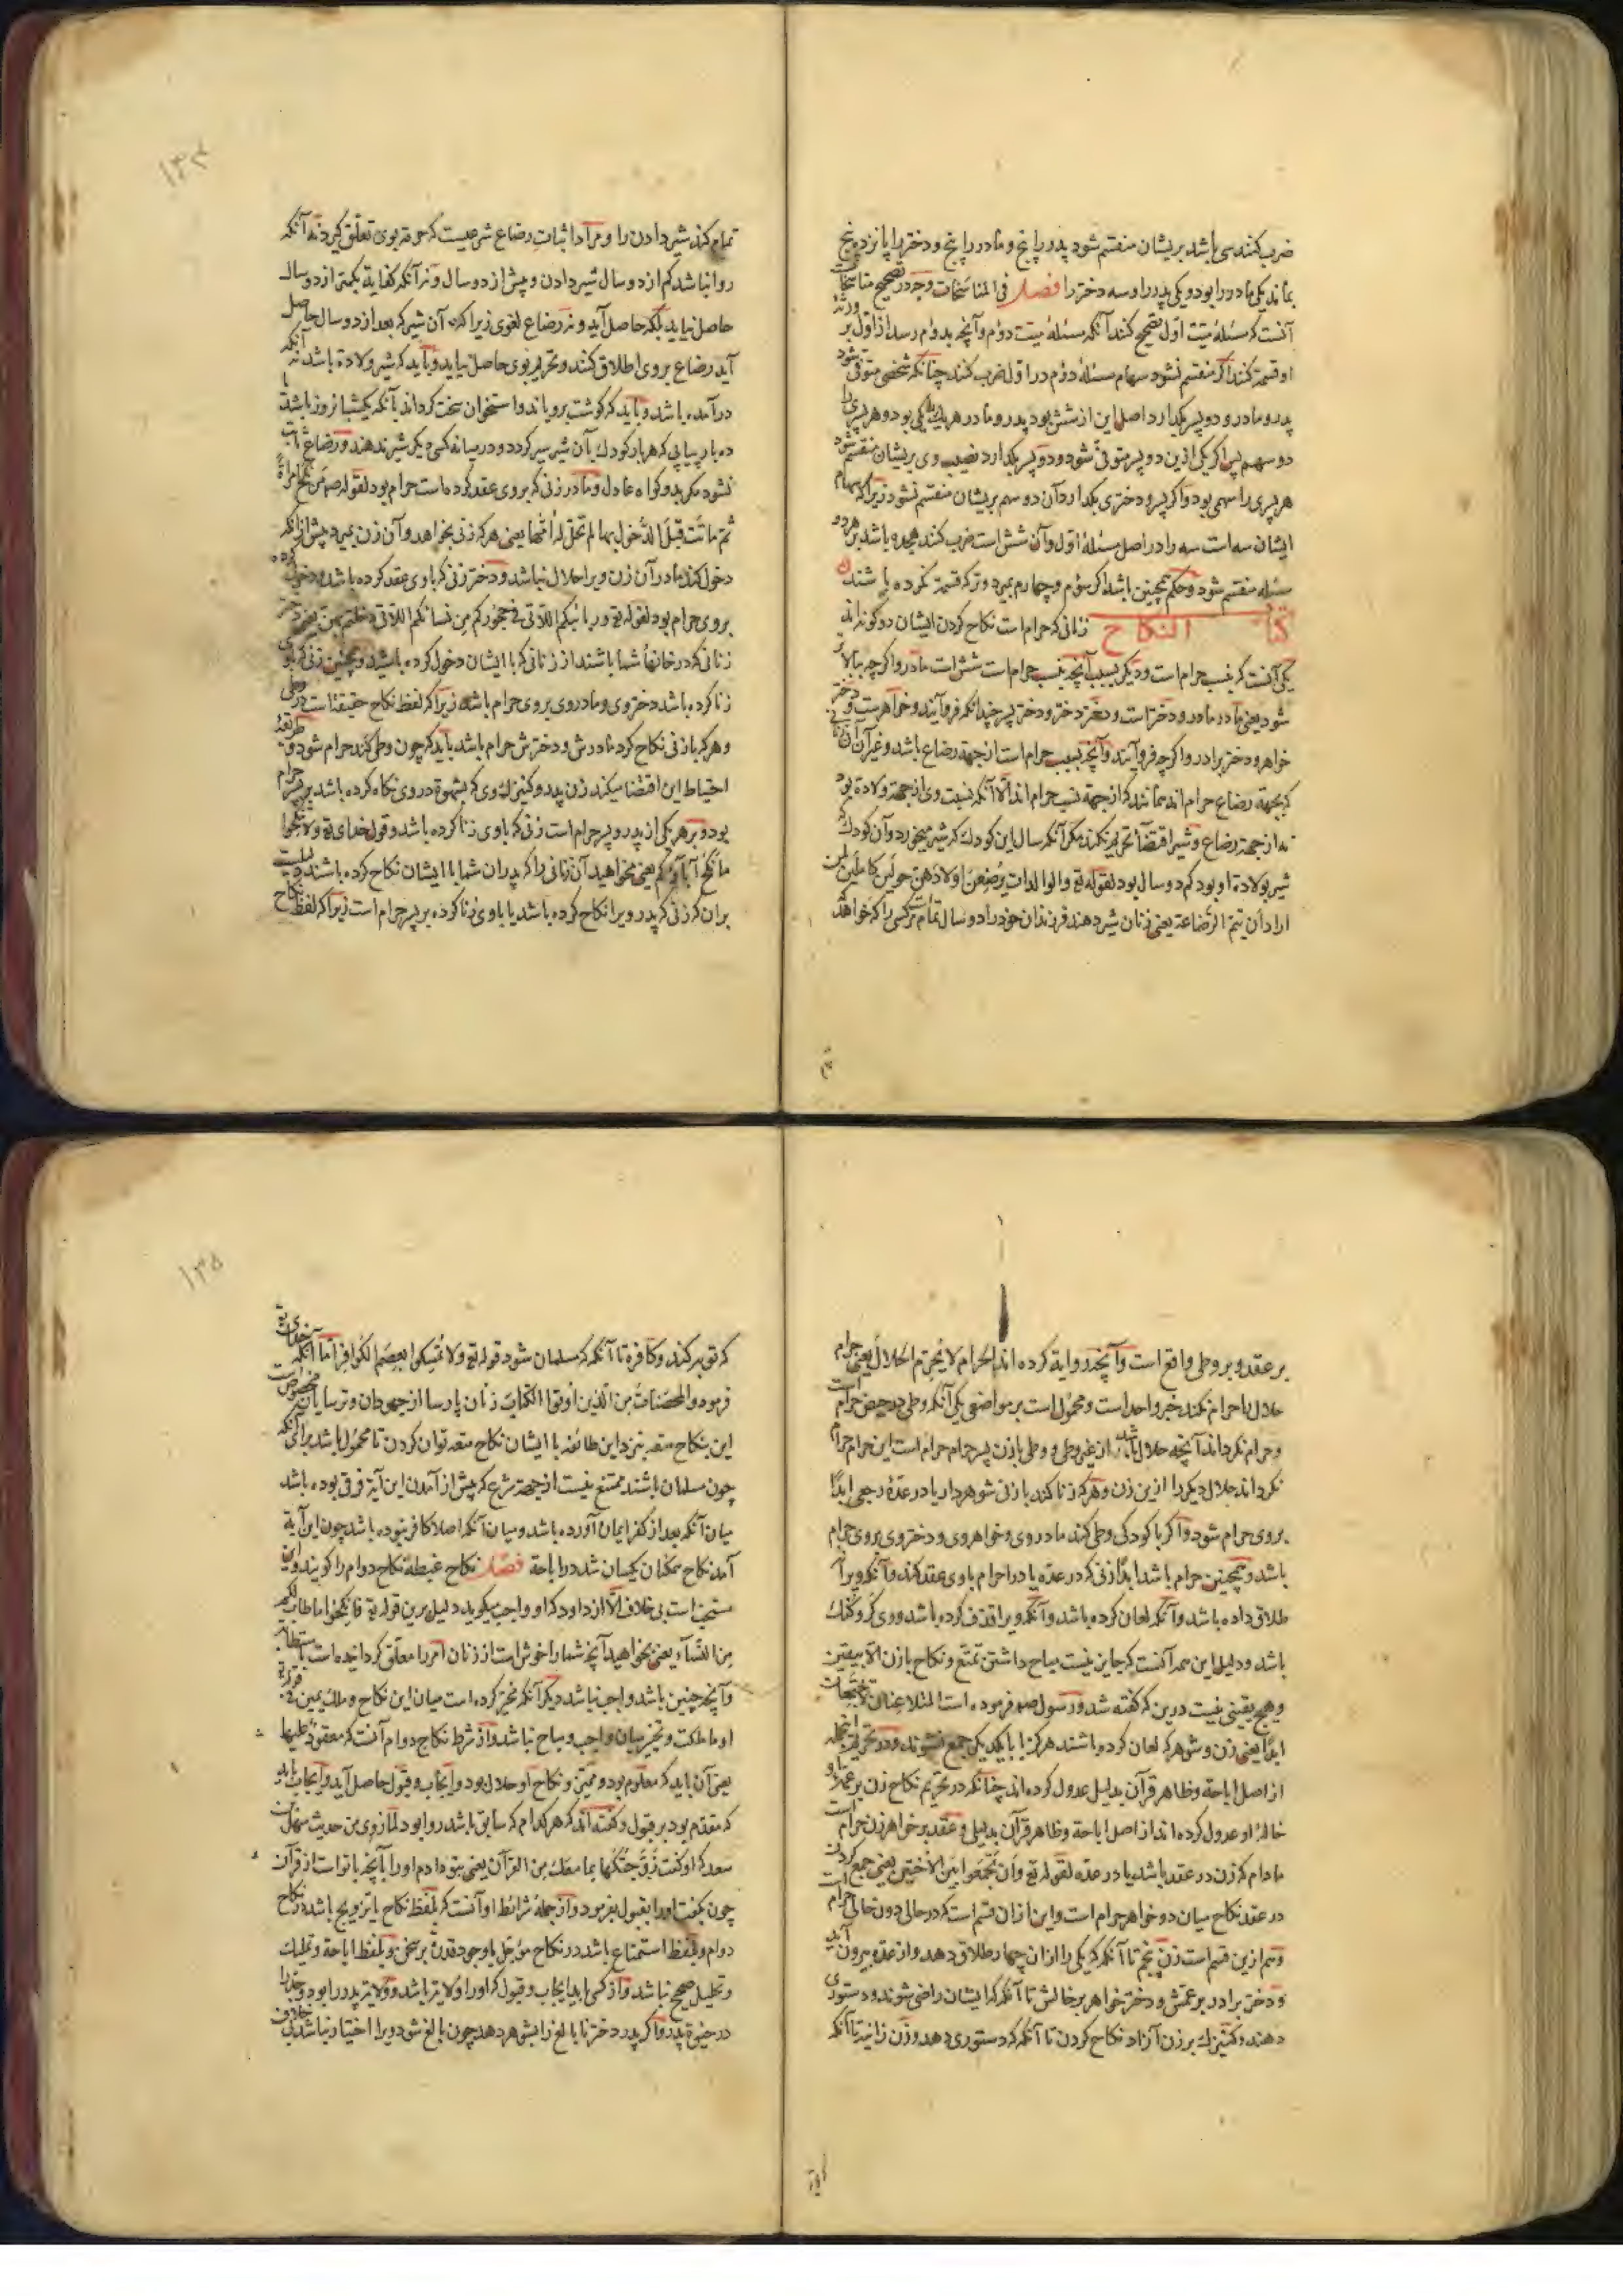 ضرب کنند سی باشد بریشان منقسم شود پدر را پنج و مادر را پنج و دختر را پانزده پنج
بماند یکی مادر را بود و یکی پدر را و سه دختر را فصل فی المناسخات وجه در تصحیح مناسخات
آنست که مسئله میّت اوّل تصحیح کنند آنکه مسئله میّت دوّم و آنچه بدوّم رسد از اوّل بر ورثهٔ
او قسمة کنند اکر منقسم نشود سهام مسئله دوّم در اوّل ضرب کنند چنانکه شخصی متوفی شود
پدر و مادر و دو پسر بکذارد اصل این از شش بود پدر و مادر هر یک را یکی بود و هر پسری را
دو سهم پس اکر یکی ازین دو پسر متوفی شود و دو پسر بکذارد نصیب وی بریشان منقسم شود
هر پسری را سهمی بود و اکر پسر و دختری بکذارد آن دو سهم بریشان منقسم نشود زیرا که سهام
ایشان سه است سه را در اصل مسئله اوّل و آن شش است ضرب کنند هجده باشد بر هر دو
مسئله منقسم شود و حکم همچنین باشد اکر سوّم و چهارم بمیرد و ترکه قسمة نکرده باشند
کتاب النکاح زنانی که حرام است نکاح کردن ایشان دو کونه‌اند
یکی آنست که بنسب حرام است و دیکر بسبب آنچه بنسب حرام است شش است مادر و اکرچه ببالا بر
شود یعنی مادر مادر و دختر است و دختر دختر و دختر پسر چندانکه فرو آیند و خواهرست و دختر
خواهر و دختر برادر و اکرچه فرو آیند و آنچه بسبب حرام است از جهة رضاع باشد و غیر آن
که بجهة رضاع حرام اند همانند که از جهة نسب حرام اند الّا آنکه نسبت وی از جهة ولادة بود
نه از جهة رضاع و شیر اقتضاء تحریم نکند مکر آنکه سال این کودک که شیر میخورد و آن کودک که
شیر بولادة او بود کم دو سال بود لقوله تع والوالدات یرضعن اولادهن حولین کاملین لمن
اراد ان یتم الرضاعة یعنی زنان شیر دهند فرزندان خود را دو سال تمام مر کسی را که خواهد که
۱۳۴
تمام کند شیر دادن را و مراد اثبات رضاع شرعیست که حرمة بوی تعلّق کیرد نه آنکه
روا نباشد کم از دو سال شیر دادن و بیش از دو سال و نه آنکه کفایة بکمتر از دو سال
حاصل نیاید بلکه حاصل آید و نه رضاع لغوی زیرا که آن شیر که بعد از دو سال حاصل
آید رضاع بروی اطلاق کنند و تحریم بوی حاصل نیاید و باید که شیر ولادة باشد نه آنکه
درآمده باشد و باید که کوشت برویاند و استخوان سخت کرداند یا آنکه یکشبانروز باشد یا
ده بار پیاپی که هر بار کودک بآن شیر سیر کردد و در میانه کسی دیکر شیر ندهند و رضاع ثابت
نشود مکر بدو کواه عادل و مادر زنی که بروی عقد کرده است حرام بود لقوله صم من نکح امراة
ثم ماتت قبل الدخول بها لم تحل له امّها یعنی هر که زنی بخواهد و آن زن بمیرد پیش از آنکه
دخول کند مادر آن زن ویرا حلال نباشد و دختر زنی که باوی عقد کرده باشد و دخول کرده
بروی حرام بود لقوله تع و ربائبکم اللاتی فی حجورکم من نسائکم اللاتی دخلتم بهن یعنی دختر
زنانی که در خانهاء شما باشند از زنانی که با ایشان دخول کرده باشید و همچنین زنی که بوی
زنا کرده باشد دختر وی و مادر وی بروی حرام باشد زیرا که لفظ نکاح حقیقتا ست در وطی
و هر که با زنی نکاح کرد مادرش و دخترش حرام باشد باید که چون وطی کند حرام شود و طریقهٔ
احتیاط این اقتضا میکند زن پدر و کنیزک وی که بشهوة در وی نکاه کرده باشد بر پسر حرام
بود و بر هر یکی از پدر و پسر حرام است زنی که باوی زنا کرده باشد و قول خدای تع و لا تنکحوا
ما نکح آباؤکم یعنی مخواهید آن زنانی را که پدران شما با ایشان نکاح کرده باشند دلیلست
بران که زنی که پدر ویرا نکاح کرده باشد یا باوی زنا کرده بر پسر حرام است زیرا که لفظ نکاح
بر عقد و بر وطی واقع است و آنچه روایة کرده اند الحرام لا یحرّم الحلال یعنی حرام
حلال را حرام نکند خبر واحد است و محمول است بر مواضعی یکی آنکه وطی در حیض حرام است
و حرام نکرداند آنچه حلال باشد از غیر وطی و وطی با زن پسر حرام حرام است این حرام حرام
نکرداند حلال دیکر را ازین زن و هر که زنا کند با زنی شوهردار یا در عدّة رجعی ابدًا
بروی حرام شود و اکر با کودکی وطی کند مادر وی و خواهر وی و دختر وی بروی حرام
باشد و همچنین حرام باشد ابدًا زنی که در عدّه یا در احرام باوی عقد کند و آنکه ویرا
طلاق داده باشد و آنکه لعان کرده باشد و آنکه ویرا قذف کرده باشد و وی کر و کنک
باشد و دلیل این همه آنست که جایز نیست مباح داشتن تمتع و نکاح با زن الا بیقین
و هیچ یقینی نیست درین که کفته شد و رسول صم فرموده است المتلاعنان لا یجتمعان
ابدًا یعنی زن و شوهر که لعان کرده باشند هرکز ابا یکدیکر جمع نشوند و در تحریم اینجمله
از اصل اباحة و ظاهر قرآن بدلیل عدول کرده اند چنانکه در تحریم نکاح زن بر عمّه او
خالهٔ او عدول کرده اند از اصل اباحة و ظاهر قرآن بدلیل و عقد بر خواهر زن حرام است
مادام که زن در عقد باشد یا در عدّه لقوله تع و ان تجمعوا بین الاختین یعنی جمع کردن
در عقد نکاح میان دو خواهر حرام است و این ازان قسم است که در حالی دون حالی حرام است
و هم ازین قسم است زن پنجم تا آنکه که یکی را ازان چهار طلاق دهد و از عدّه بیرون آید
و دختر برادر بر عمتش و دختر خواهر بر خالتش تا آنکه که ایشان راضی شوند و دستوری
دهند و کنیزک بر زن آزاد نکاح کردن تا آنکه که دستوری دهد و زن زانیه تا آنکه
۱۳۵
که توبه کند و کافره تا آنکه که مسلمان شود قوله تع و لا تمسکوا بعصم الکوافر اما آنکه خدای تع
فرمود والمحصنات من الذین اوتوا الکتاب زنان پارسا از جهودان و ترسایان مخصوص است
این بنکاح متعه بنزد این طائفه با ایشان نکاح متعه توان کردن تا محمول باشد بر آنکه
چون مسلمان باشند ممتنع نیست از جهة شرع که پیش از آمدن این آیة فرق بوده باشد
میان آنکه بعد از کفر ایمان آورده باشد و میان آنکه اصلا کافر نبوده باشد چون این آیة
آمد نکاح همکنان یکسان شد در اباحة فصل نکاح غبطه نکاح دوام را کویند و این
مستحبّ است بی خلاف الّا از داود که او واجب میکوید دلیل برین قوله تع فانکحوا ما طاب لکم
من النساء یعنی بخواهید آنچه شما را خوش است از زنان امر را معلّق کردانیده است باستطابه
و آنچه چنین باشد واجب نباشد دیکر آنکه مخیّر کرده است میان این نکاح و ملک یمین فی قوله تع
او ما ملکت و تخیّر میان واجب و مباح نباشد و از شرط نکاح دوام آنست که معقودٌ علیها
یعنی آن باید که معلوم بود و معیّن و نکاح او حلال بود و ایجاب و قبول حاصل آید و ایجاب باید
که مقدّم بود بر قبول و کفته اند که هر کدام که سابق باشد روا بود لما روی من حدیث سهل بن
سعد که او کفت زوّجتکها بما معک من القرآن یعنی بتو دادم او را بآنچه باتو است از قرآن
چون بکفت او را بقبول نفرمود و از جملهٔ شرائط او آنست که بلفظ نکاح یا تزویج باشد در نکاح
دوام و بلفظ استمتاع باشد در نکاح مؤجّل با وجود قدرة بر سخن و بلفظ اباحة و تملیک
و تحلیل صحیح نباشد و از کسی باید ایجاب و قبول که او را ولایة باشد و ولایة پدر را بود و جدّ را
در حیوة پدر و اکر پدر دختر نابالغ را بشوهر دهد چون بالغ شود ویرا اختیار نباشد بی خلاف